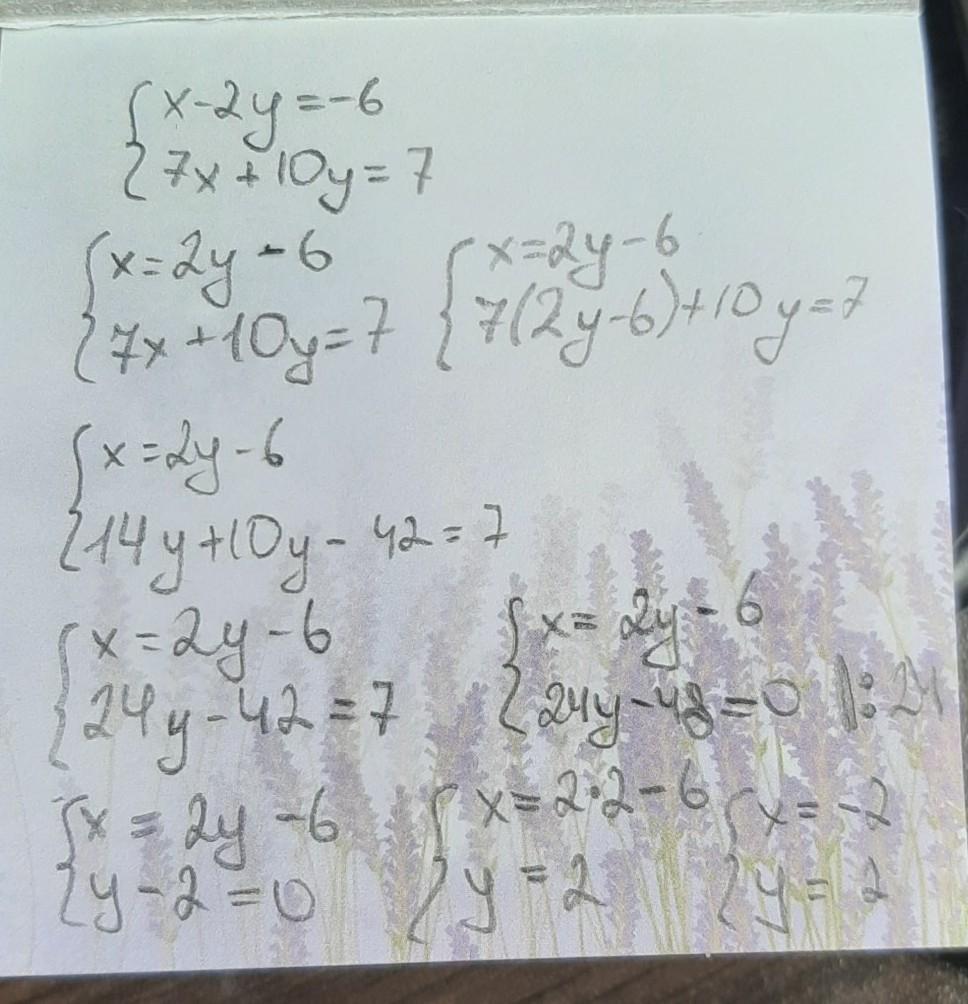 x-2y=-6
7x+10y=7
x=2y-6
7x+10y=7
x=2y-6
7(2y-6)+10y=7
x=2y-6
14y+10y-42=7
x=2y-6
24y-42=7
x=2y-6
24y-48=0 |:24
x=2y-6
y-2=0
x=2·2-6
y=2
x=-2
y=2